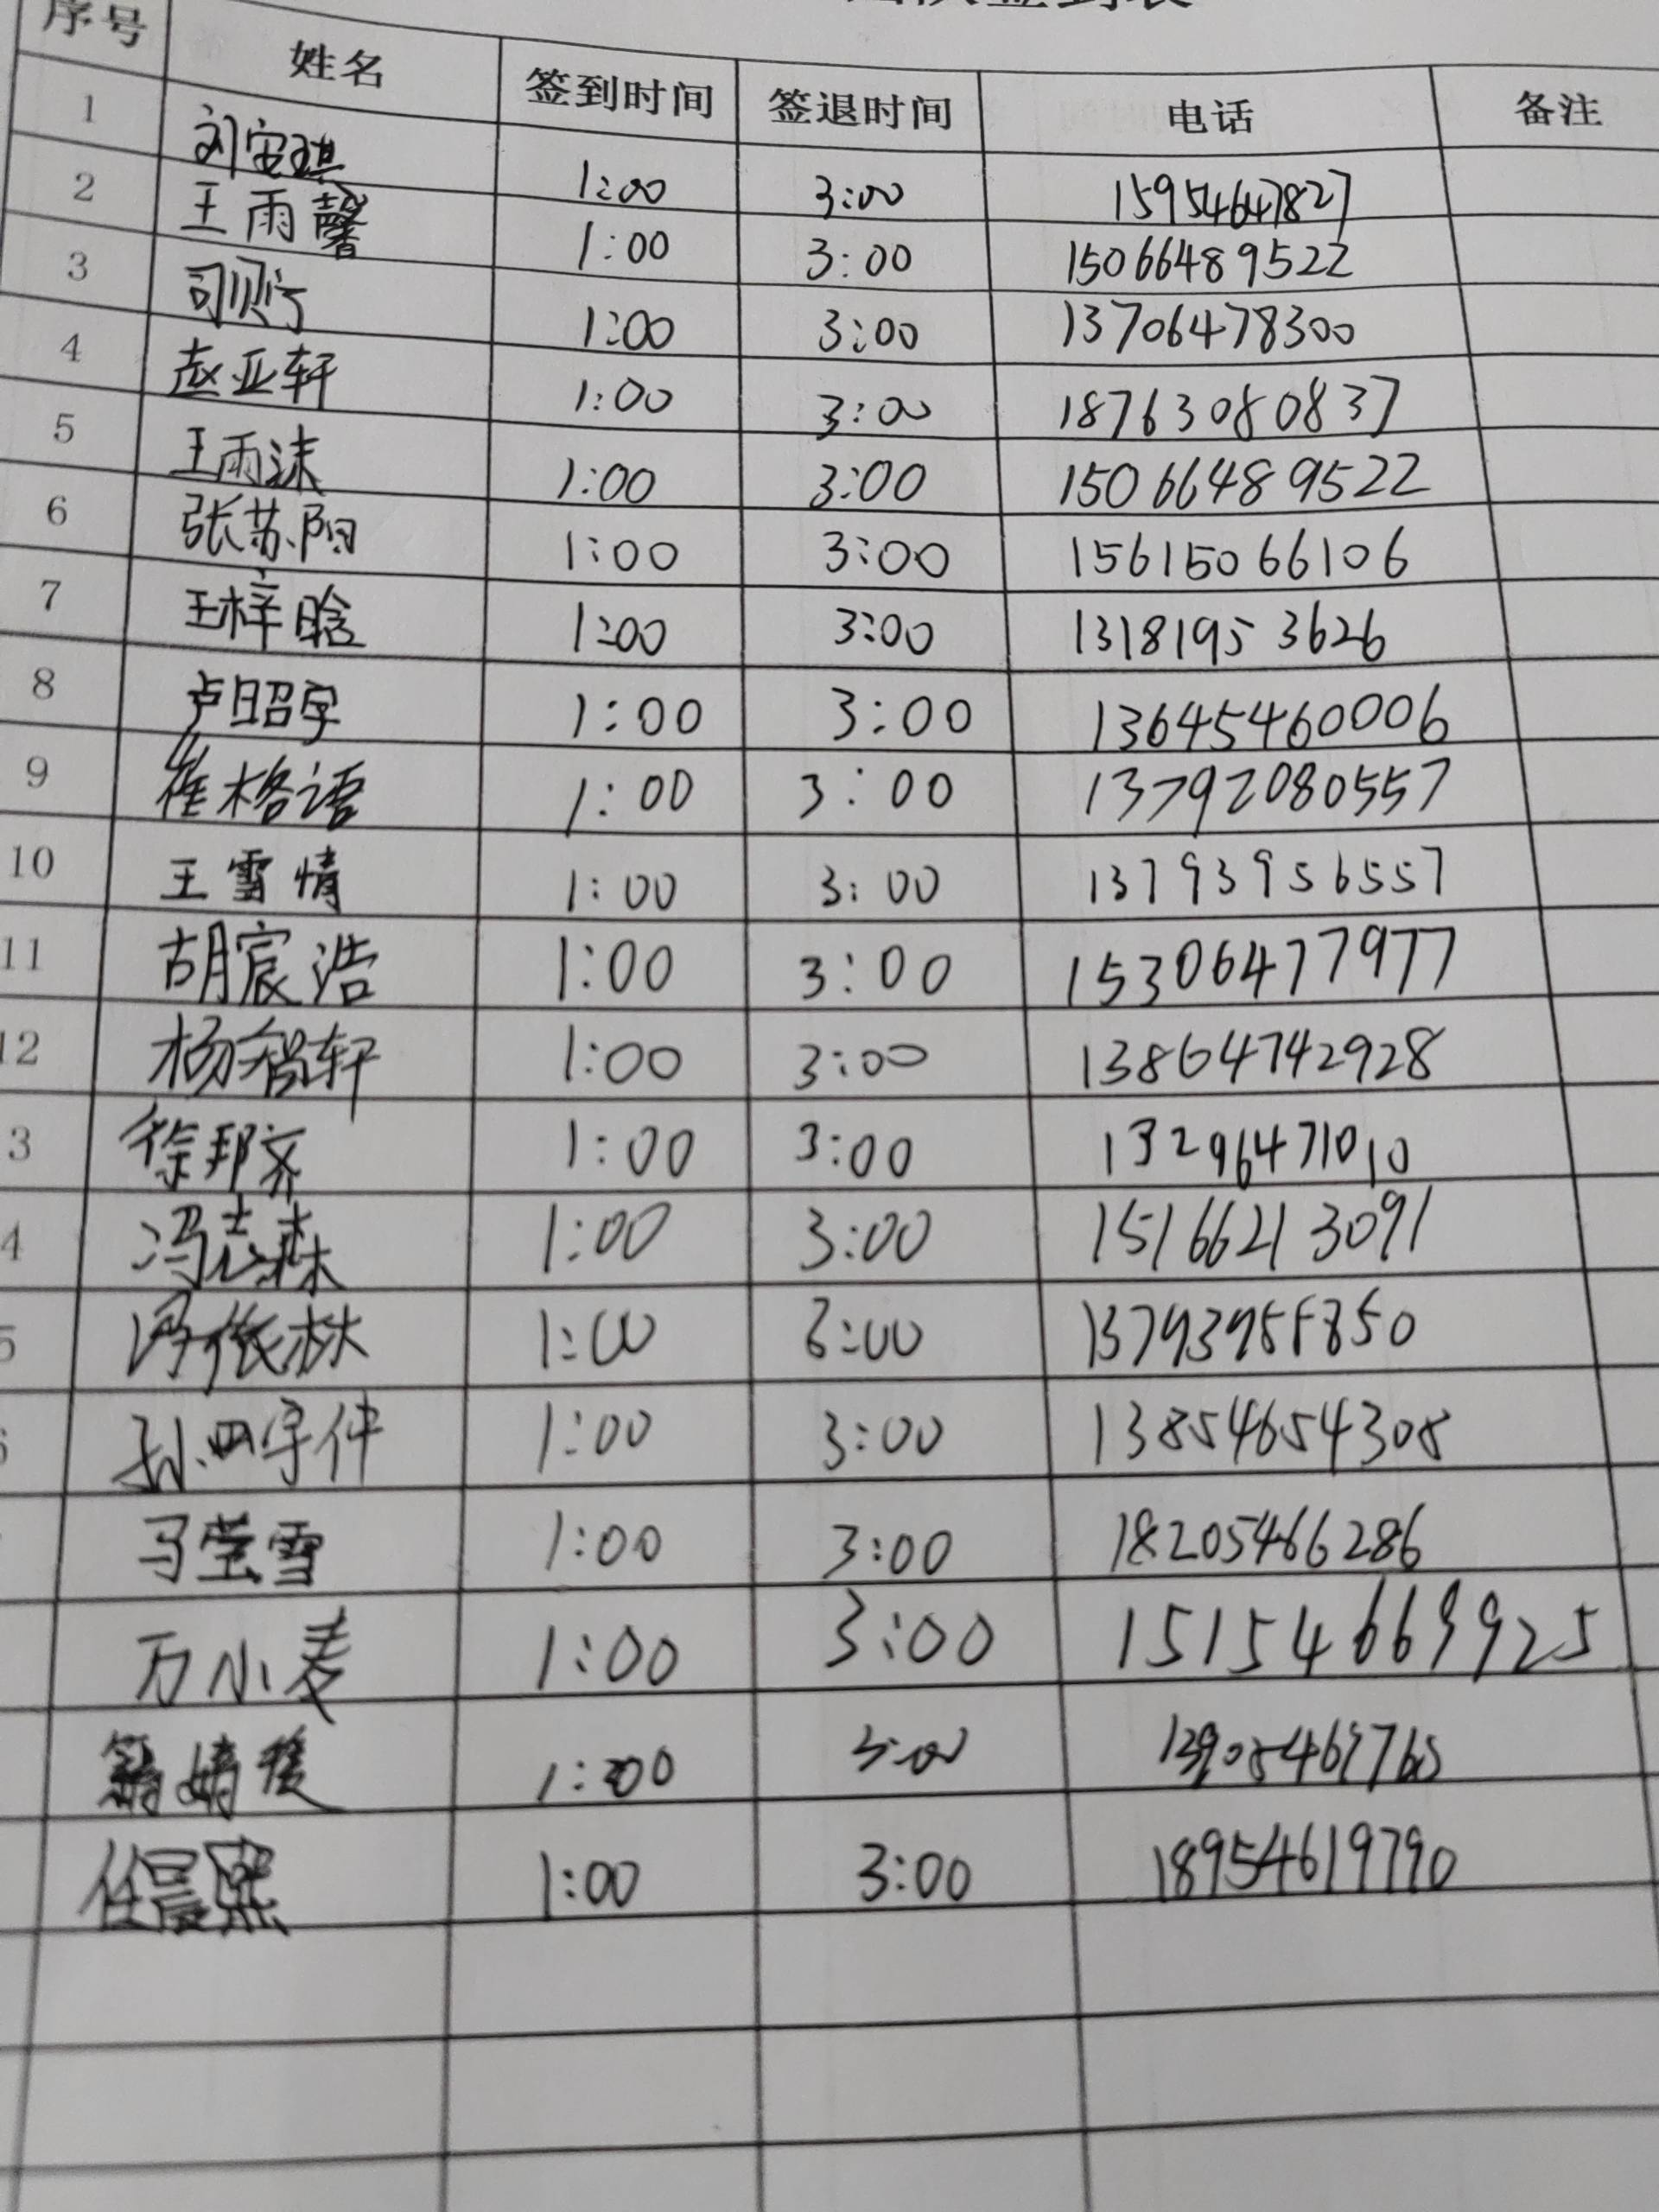 序号 姓名 签到时间 签退时间 电话 备注
1 刘安琪 1:00 3:00 15954647827
2 王雨馨 1:00 3:00 15066489522
3 司贝宁 1:00 3:00 13706478300
4 赵亚轩 1:00 3:00 18763080837
5 王雨沫 1:00 3:00 15066489522
6 张苏阳 1:00 3:00 15615066106
7 王梓晗 1:00 3:00 13181953626
8 卢昭宇 1:00 3:00 13645460006
9 崔格语 1:00 3:00 13792080557
10 王雪情 1:00 3:00 13793956557
11 胡宸浩 1:00 3:00 15306477977
12 杨智轩 1:00 3:00 13864742928
3 徐邦齐 1:00 3:00 13296471010
4 冯志森 1:00 3:00 15166213091
5 冯依林 1:00 3:00
1:00 3:00 13854654308
马莹雪 1:00 3:00 18205466286
万小麦 1:00 3:00 15154669925
1:00 3:00
任晨熙 1:00 3:00 18954619790